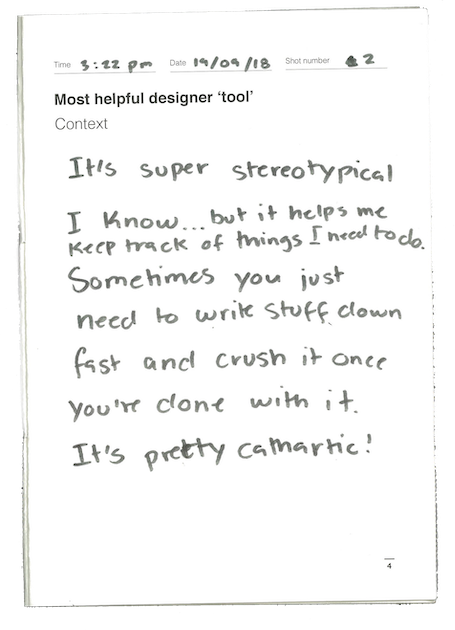 Time 3:22 pm Date 19/09/18 Shot number 2
Most helpful designer ‘tool’
Context
It's super stereotypical
I know... but it helps me
keep track of things I need to do.
Sometimes you just
need to write stuff down
fast and crush it once
you're done with it.
It's pretty cathartic!
4